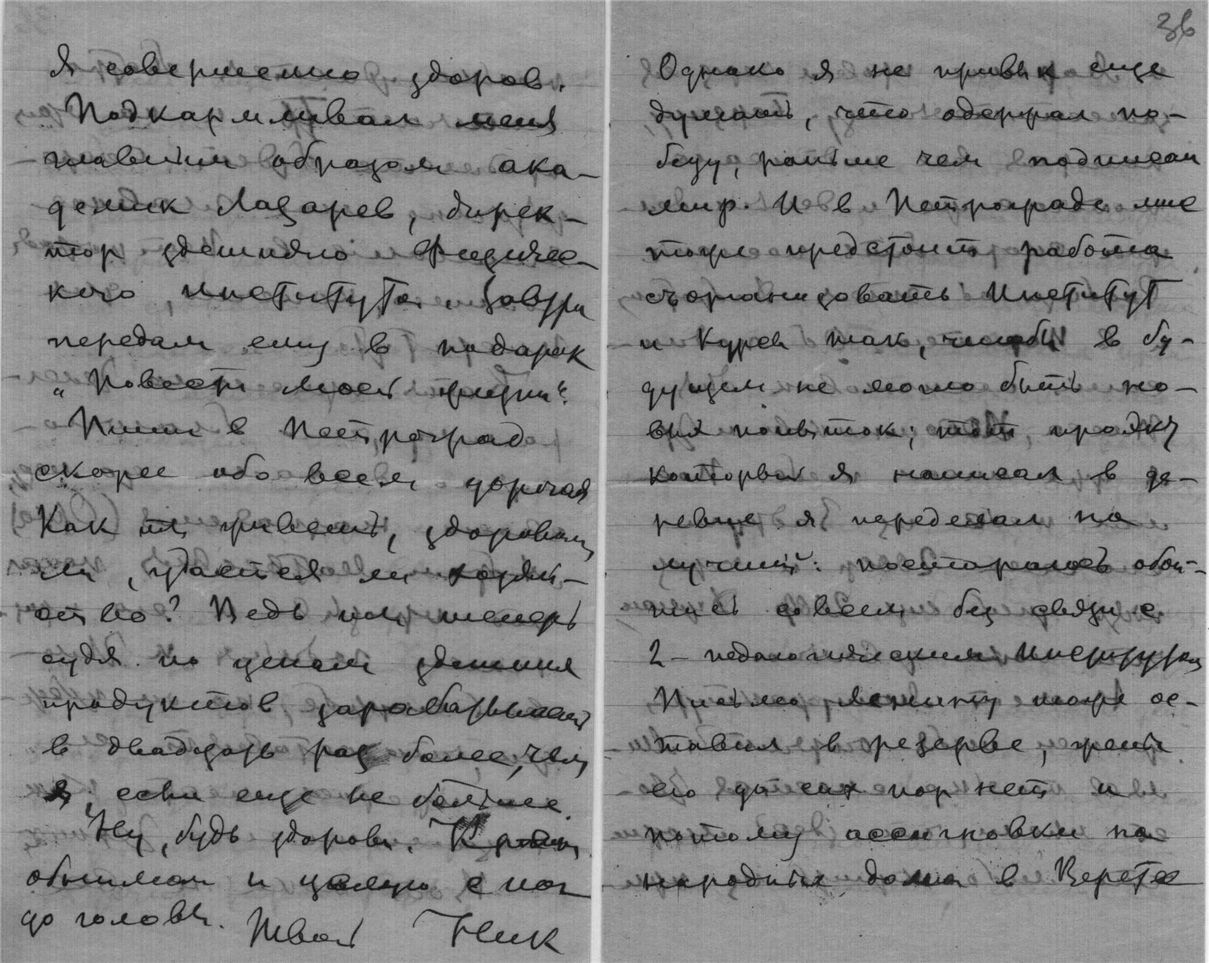 Я совершенно здоров.
Подкармливал меня
главным образом ака-
демик Лазарев, дирек-
тор здешнего Физичес-
кого института. Завтра
передам ему в подарок
„Повести моей жизни“.
Пиши в Петроград
скорее обо всем, дорогая
Как ты живешь, здорова
ли, удается ли хозяй-
ство? Ведь ты теперь
судя по ценам здешних
продуктов, зарабатываешь
в двадцать раз более, чем
я, если еще не больше.
Ну, будь здорова. Крепко
обнимаю и целую с ног
до головы. Твой Ник
36
Однако я не привык еще
думать, что одержал по-
беду, раньше чем подписан
мир. И в Петрограде мне
тоже предстоит работа
съорганизовать Институт
и Курсы так, чтобы в бу-
дущем не могло быть но-
вых попыток; тот
который я написал в де-
ревне я переделал на
лучший: постараюсь обой-
тись совсем без связи с
2-
Письмо Ленину тоже ос-
тавил в резерве,
его здесь нет и
потому ассигновки на
народный дом в Верете